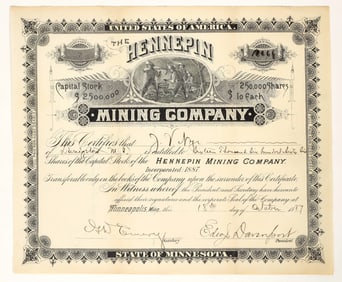 UNITED STATES OF AMERICA.
THE
HENNEPIN
Capital Stock
$2,500,000
250,000 Shares
$10 Each
MINING COMPANY.
This Certifies that
is entitled to
Shares of the Capital Stock of the HENNEPIN MINING COMPANY.
Incorporated 1887
Transferable only on the books of the Company upon the surrender of this Certificate.
In Witness whereof the President and Secretary have hereunto
affixed their signatures and the corporate Seal of the Company at
Minneapolis, Minn. this 18th day of October 1887
Secretary
Edw. J. Davenport
President
STATE OF MINNESOTA.